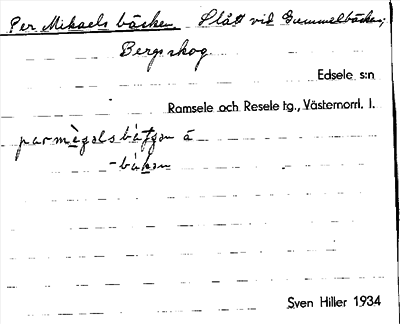 Per Mikaels bäcken Slått vid Gummelbäcken,
Bergskog
Edsele s:n
Ramsele och Resele tg., Västernorrl. l.
parmègals
-båkən
Sven Hiller 1934